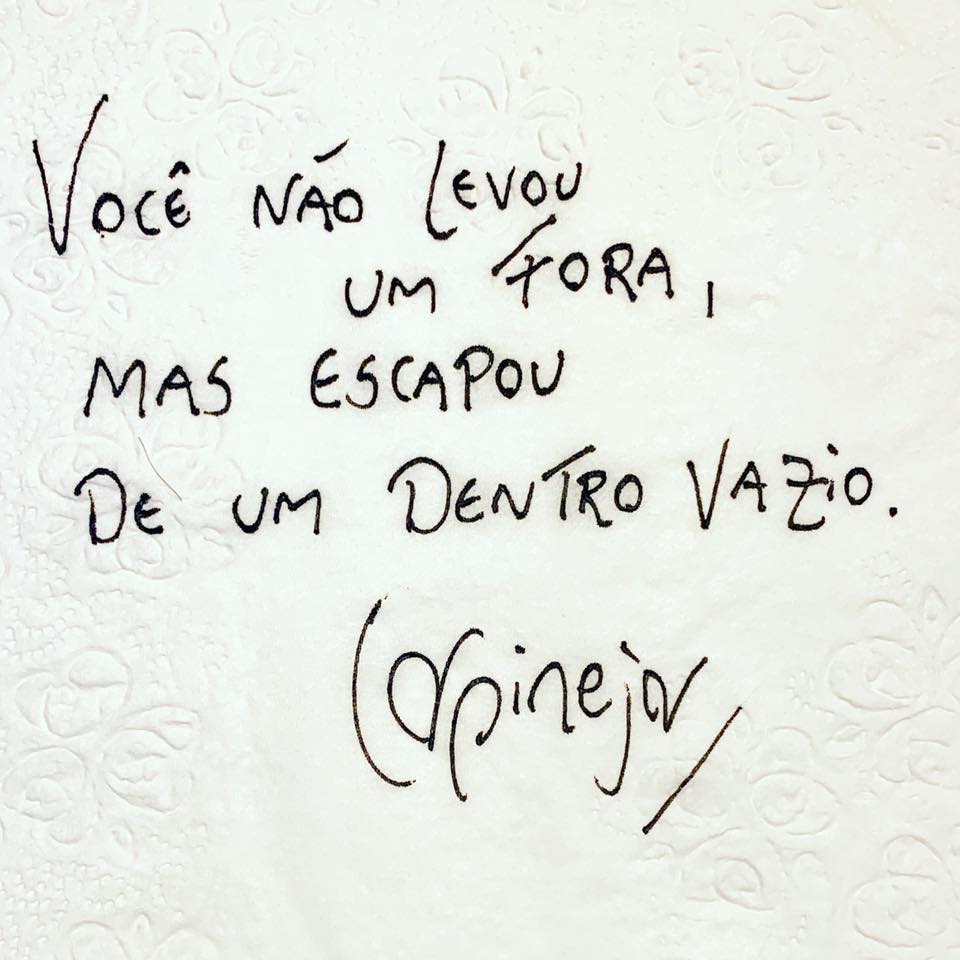 VOCÊ NÃO LEVOU
UM FORA,
MAS ESCAPOU
DE UM DENTRO VAZIO.
Carpinejar